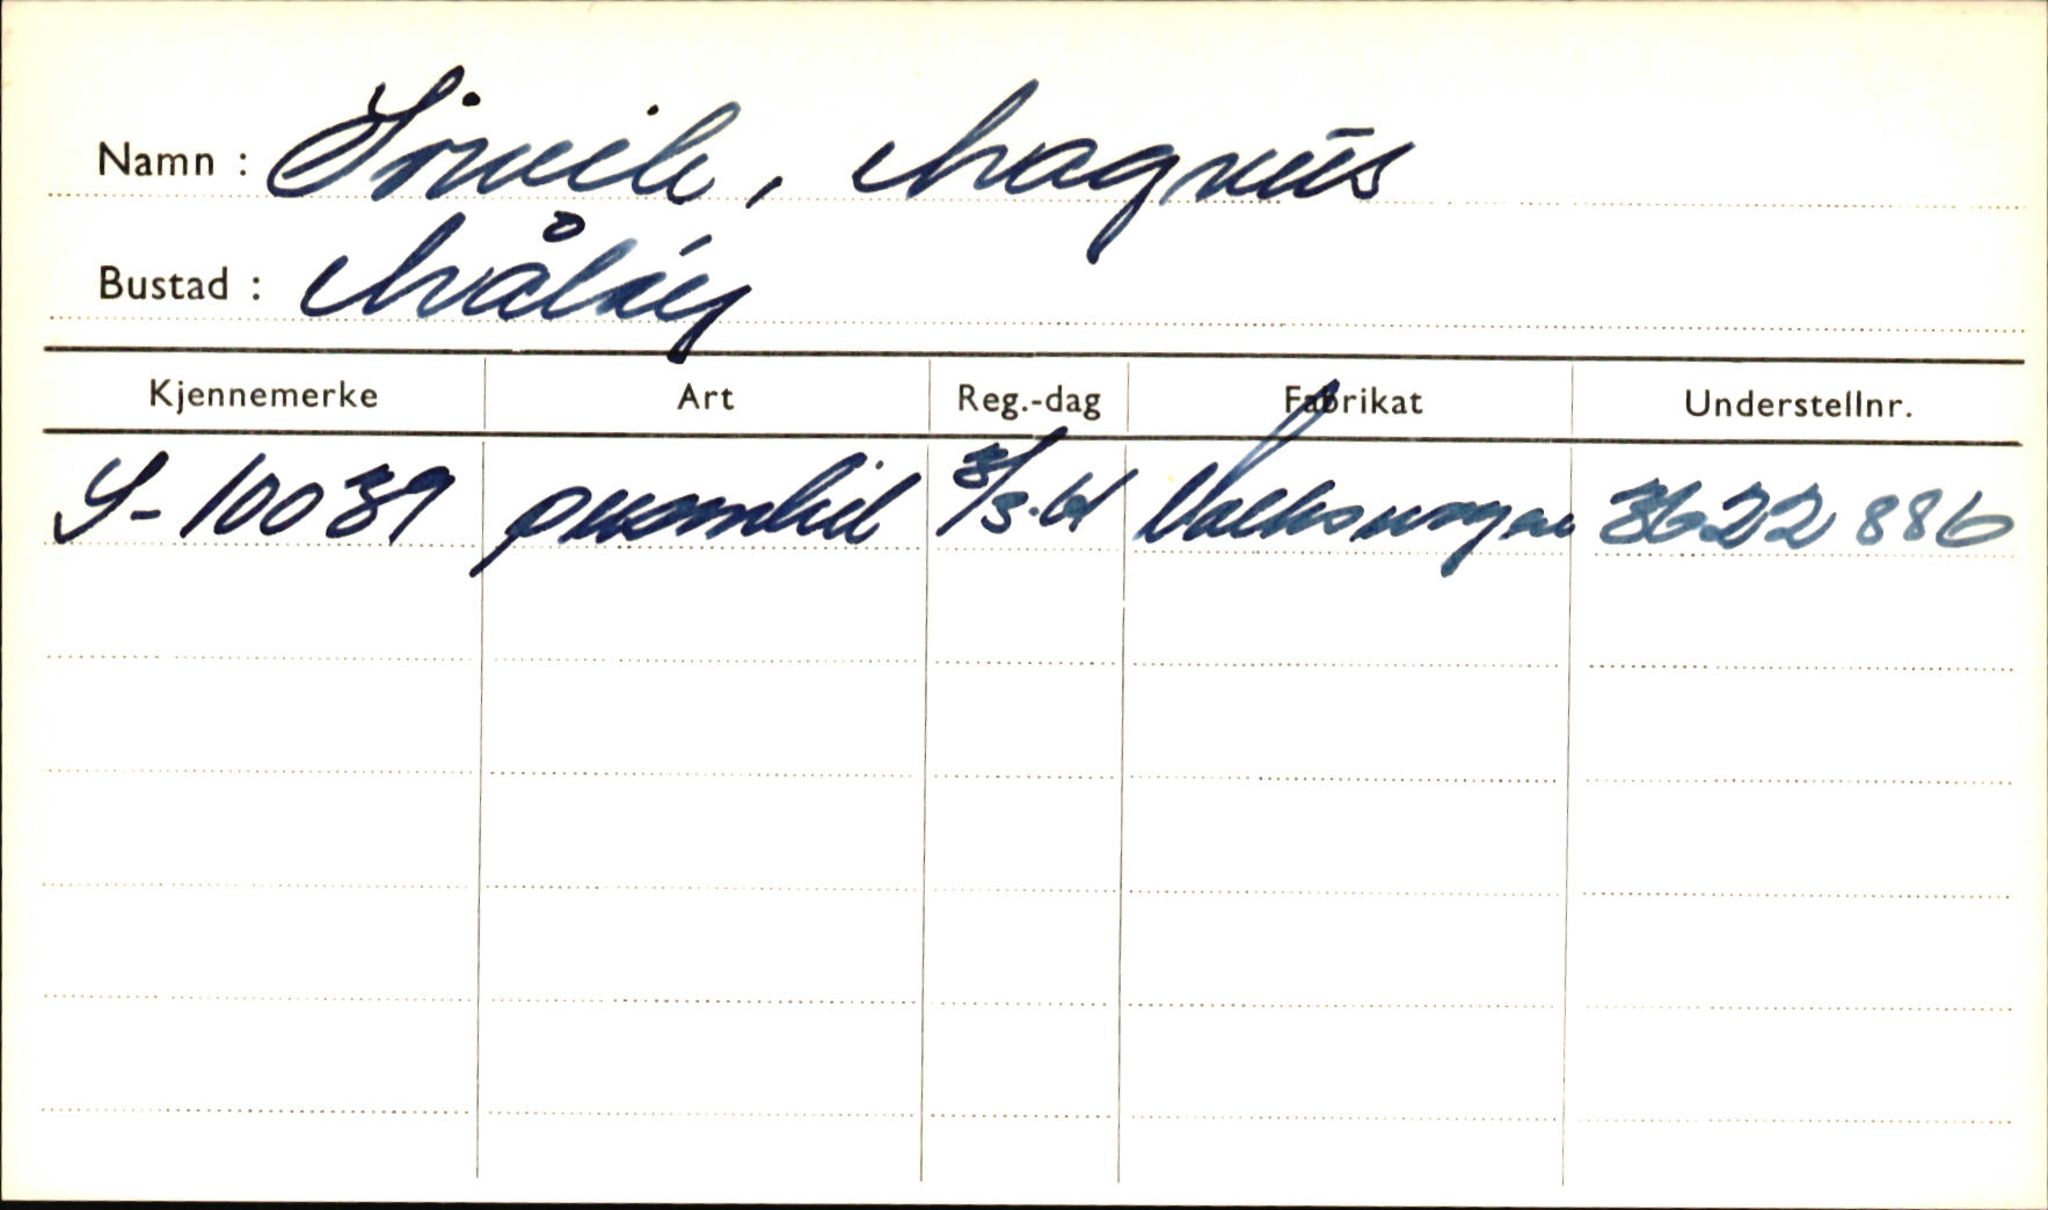 Namn : Sörvik, Magnus
Bustad : Måløy
Kjennemerke Art Reg.-dag Fabrikat Understellnr.
S-10039 personbil 3/3.61 Volkswagen 3622886